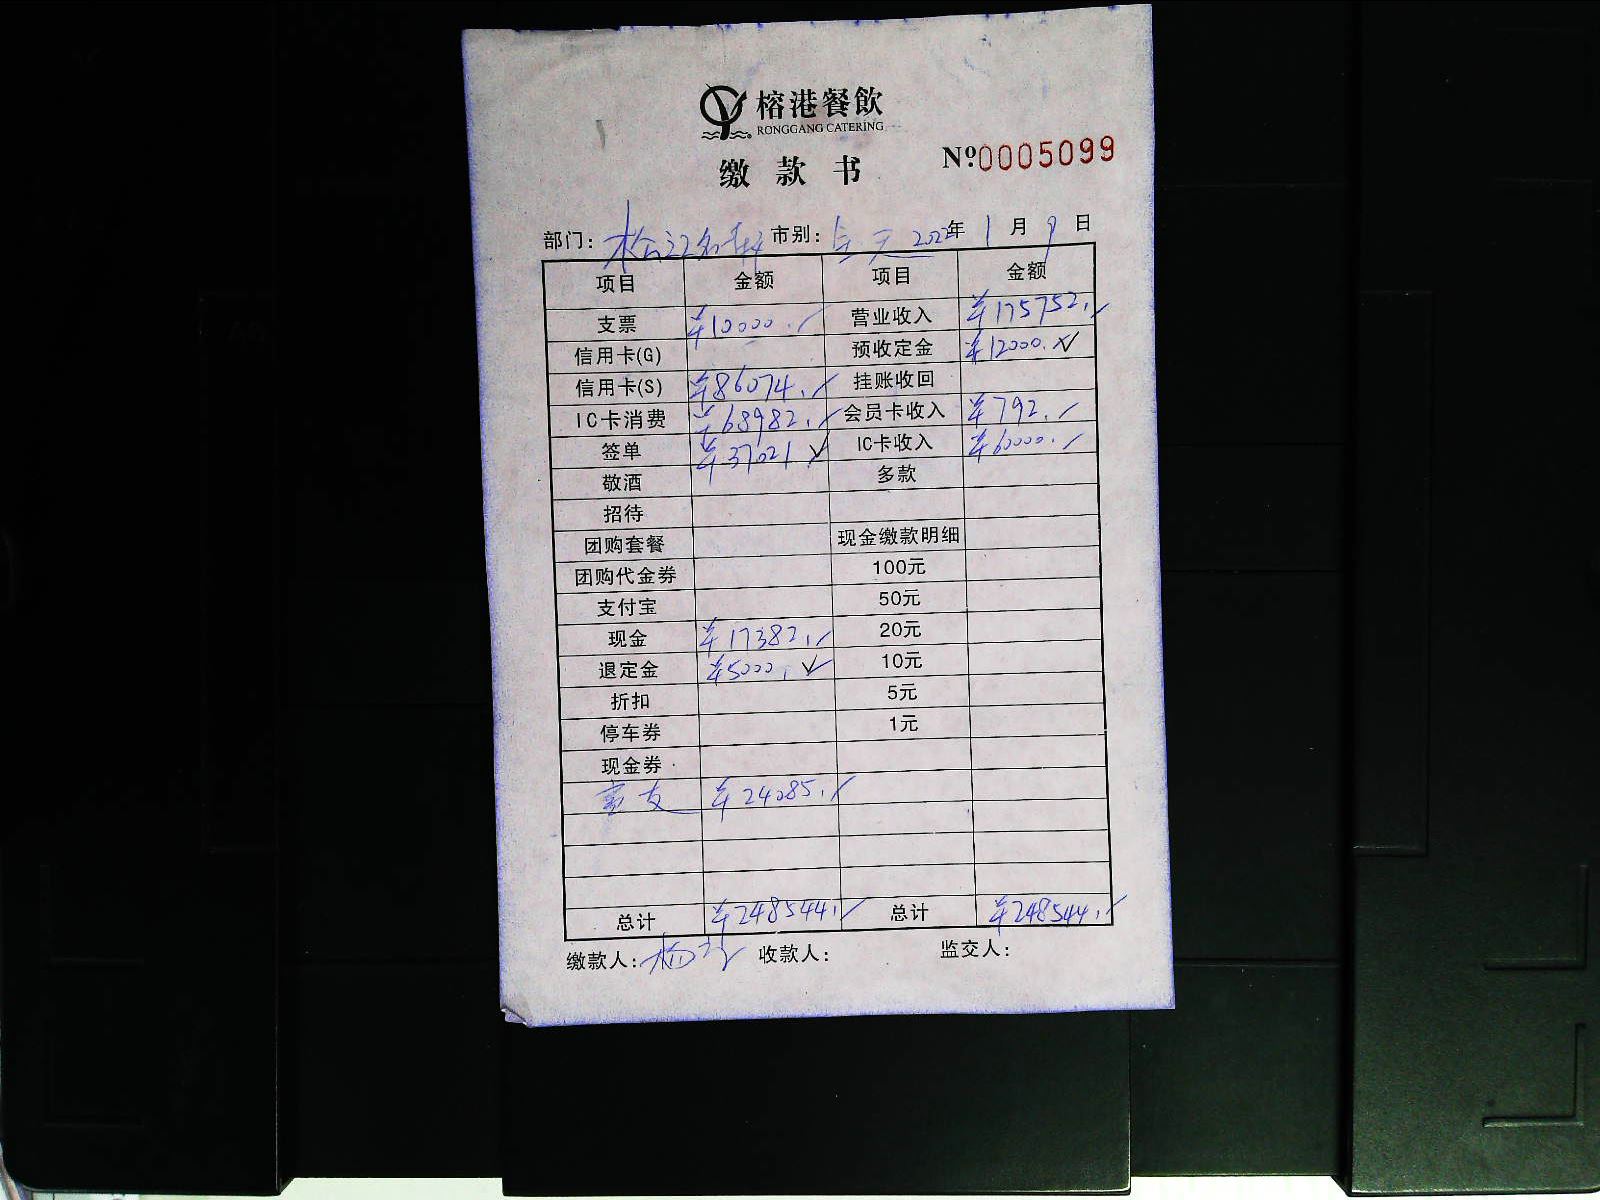 榕港餐飲
RONGGANG CATERING
缴款书
Nº0005099
部门: 松江名轩 市别: 全天 2022年 1月 9日
项目 金额 项目 金额
支票 ¥10000. 营业收入 ¥175752.
信用卡(G) 预收定金 ¥12000.
信用卡(S) ¥86074. 挂账收回
IC卡消费 ¥68982. 会员卡收入 ¥792.
签单 ¥37021 IC卡收入 ¥60000.
敬酒 多款
招待
团购套餐 现金缴款明细
团购代金券 100元
支付宝 50元
现金 ¥17382. 20元
退定金 ¥5000. 10元
折扣 5元
停车券 1元
现金券
¥24085.
总计 ¥248544. 总计 ¥248544.
缴款人: 杨 收款人: 监交人: